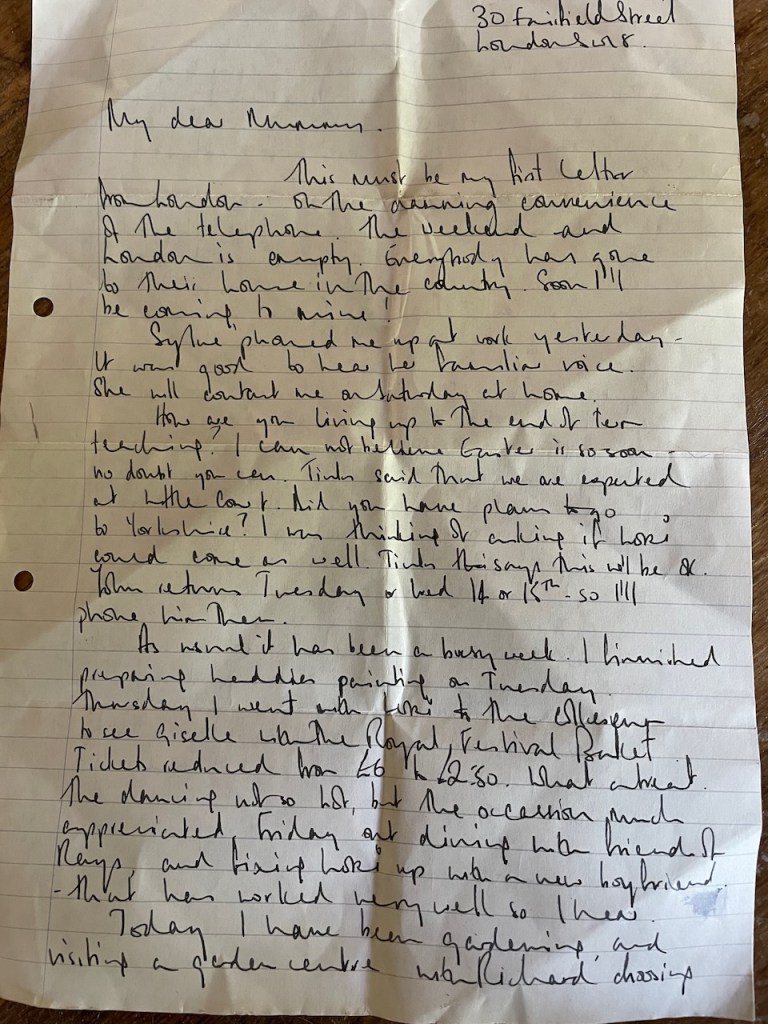 30 Fairfield Street
London SW18.
My dear Mummy.
This must be my first letter
from London - oh the damning convenience
of the telephone. The weekend and
London is empty. Everybody has gone
to their home in the country. Soon I'll
be coming to mine!
Sylvie 'phoned me up at work yesterday -
it was good to hear her familiar voice.
She will contact me on Saturday at home.
How are you living up to the end of term
teaching? I can not believe Easter is so soon -
no doubt you can. said that we are expected
at Little Court. Did you have plans to go
to Yorkshire? I was thinking of asking if
could come as well. says this will be OK.
John returns Tuesday or Wed 14 or 15th - so I'll
phone him then.
As usual it has been a busy week. I finnished
preparing painting on Tuesday.
Thursday I went with to the
to see Giselle with the Royal Festival Ballet
Tickets reduced from £6 to £2.50. What a treat.
The dancing not so hot, but the occassion much
apprieciated. Friday out dining with friend of
Rays, and fixing up with a new boyfriend.
- that has worked very well so I hear.
Today I have been gardening, and
visiting a garden centre with Richard choosing